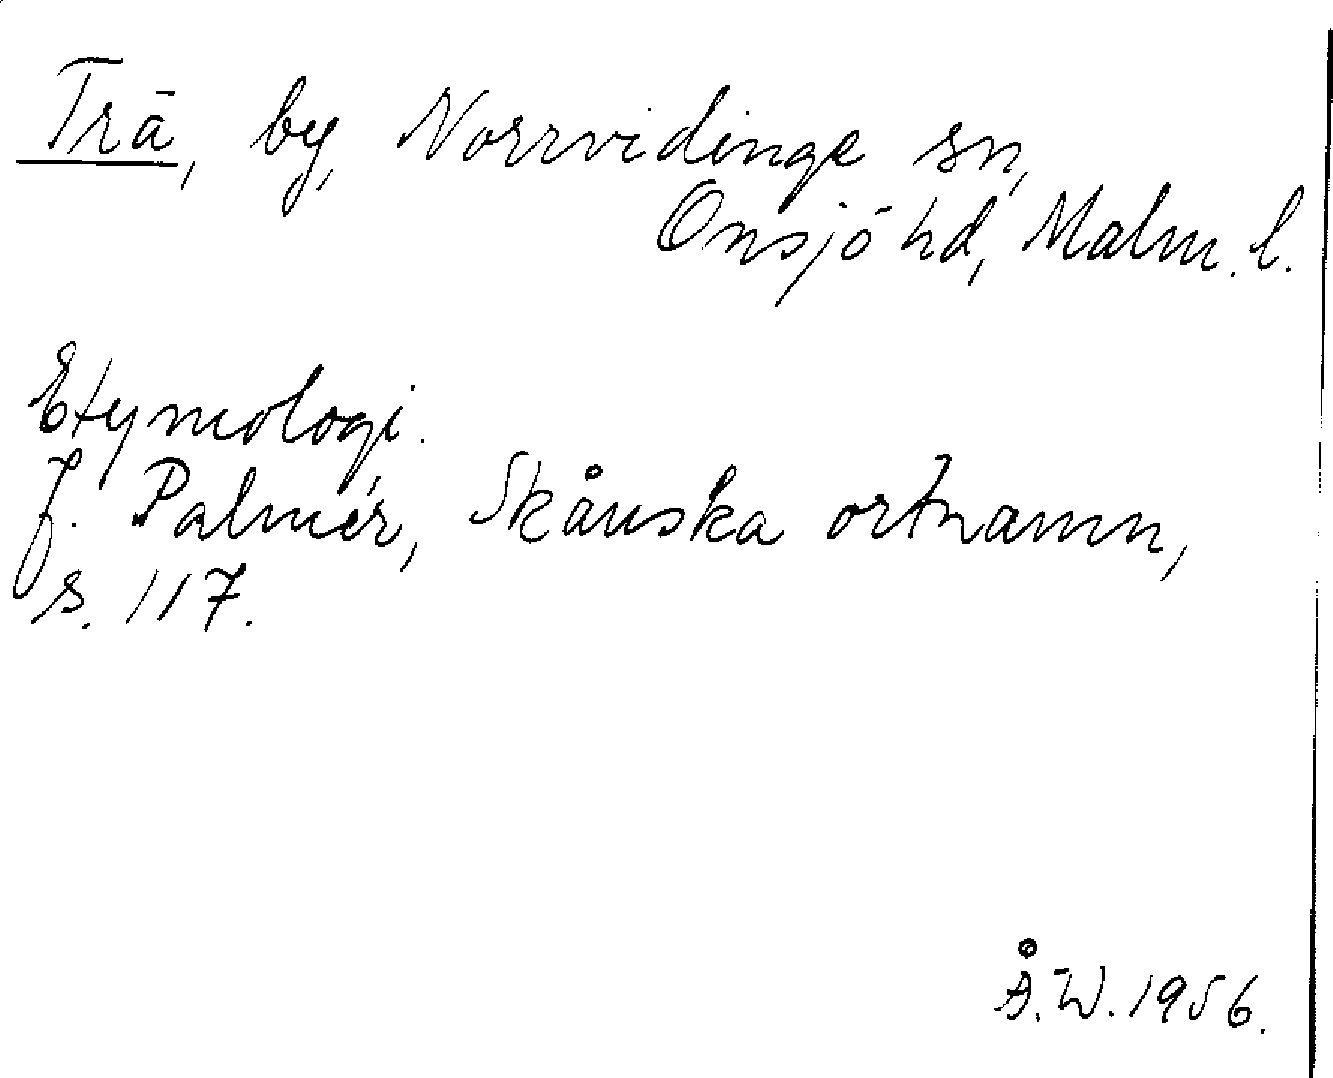 Trä, by, Norrvidinge sn,
Onsjö hd, Malm. l.
Etymologi.
J. Palmér, Skånska ortnamn,
s. 117.
Å.W. 1956.